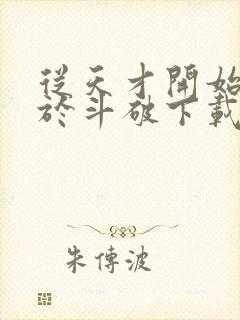 從天才開始
於斗破下載
朱傳波